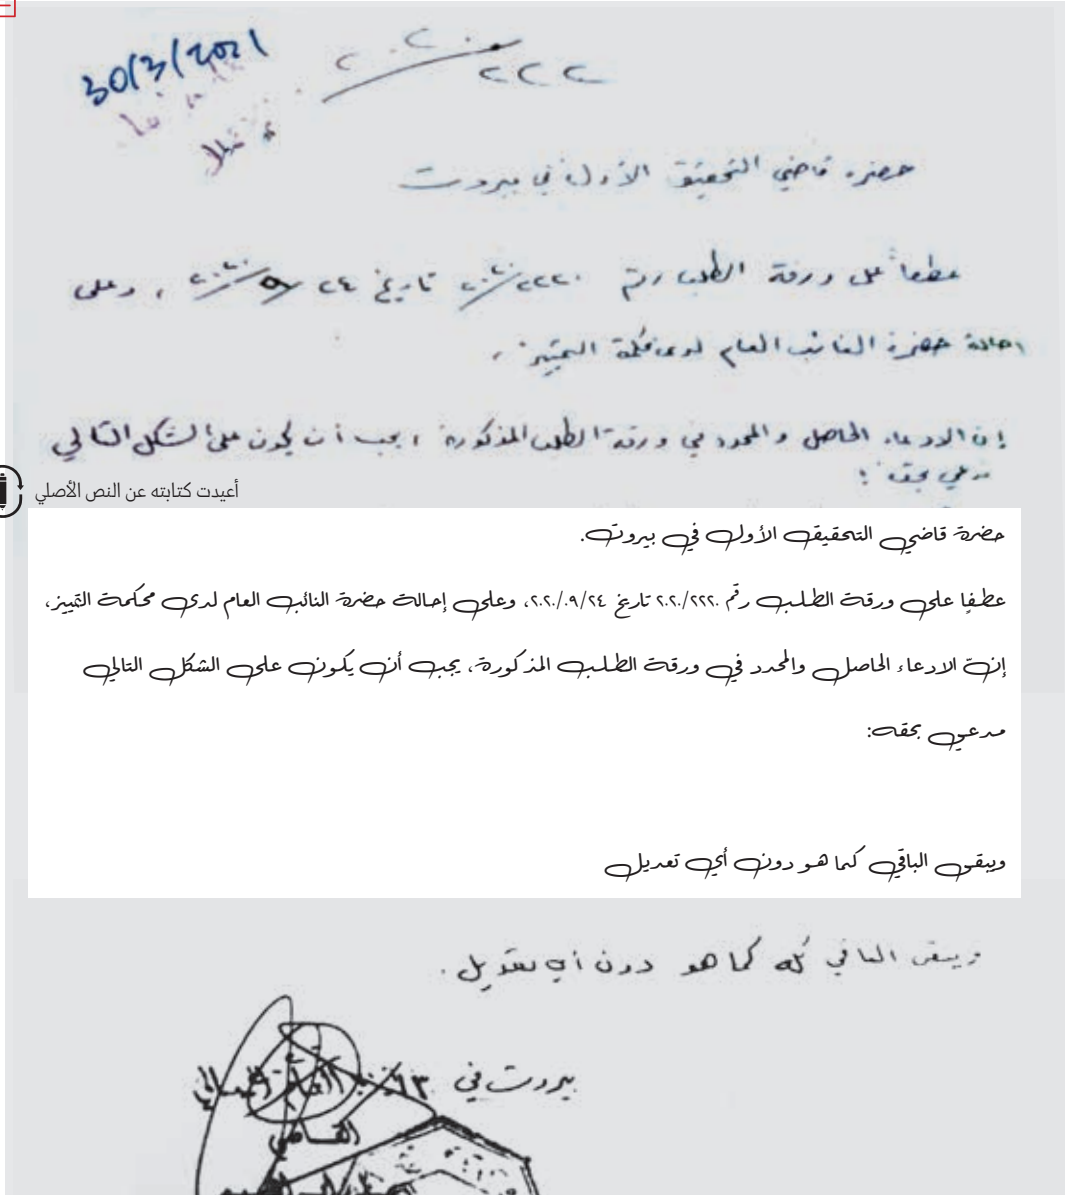 30/3/2021
٢٠٢٠/٢٢٢
حضرة قاضي التحقيق الأول في بيروت
عطفاً على ورقة الطلب رقم ٢٠٢٠/٢٢٢٠ تاريخ ٢٠٢٠/٩/٢٤ ، وعلى
احالة حضرة النائب العام لدى محكمة التمييز ،
إن الادعاء الحاصل والمحدد في ورقة الطلب المذكورة ، يجب أن يكون على الشكل التالي
مدعي بحقه :
أعيدت كتابته عن النص الأصلي
حضرة قاضي التحقيق الأول في بيروت.
عطفًا على ورقة الطلب رقم ٢٠٢٠/٢٢٢٠ تاريخ ٢٠٢٠/٠٩/٢٤، وعلى إحالة حضرة النائب العام لدى محكمة التمييز،
إنّ الادعاء الحاصل والمحدد في ورقة الطلب المذكورة، يجب أن يكون على الشكل التالي
مدعي بحقه:
ويبقى الباقي كما هو دون أي تعديل
ويبقى الباقي كله كما هو دون أي تعديل.
بيروت في
القاضي